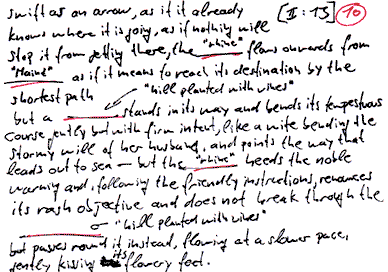 swift as an arrow, as if it already [II: 13] 10
knows where it is going, as if nothing will
stop it from getting there, the "rhine" flows onwards from
"Mainz" as if it means to reach its destination by the
shortest path "hill planted with vines"
but a stands in its way and bends its tempestuous
course gently but with firm intent, like a wife bending the
stormy will of her husband, and points the way that
leads out to sea – but the "rhine" heeds the noble
warning and, following the friendly instructions, renounces
its rash objective and does not break through the
"hill planted with vines"
but passes round it instead, flowing at a slower pace,
gently kissing its flowery feet.